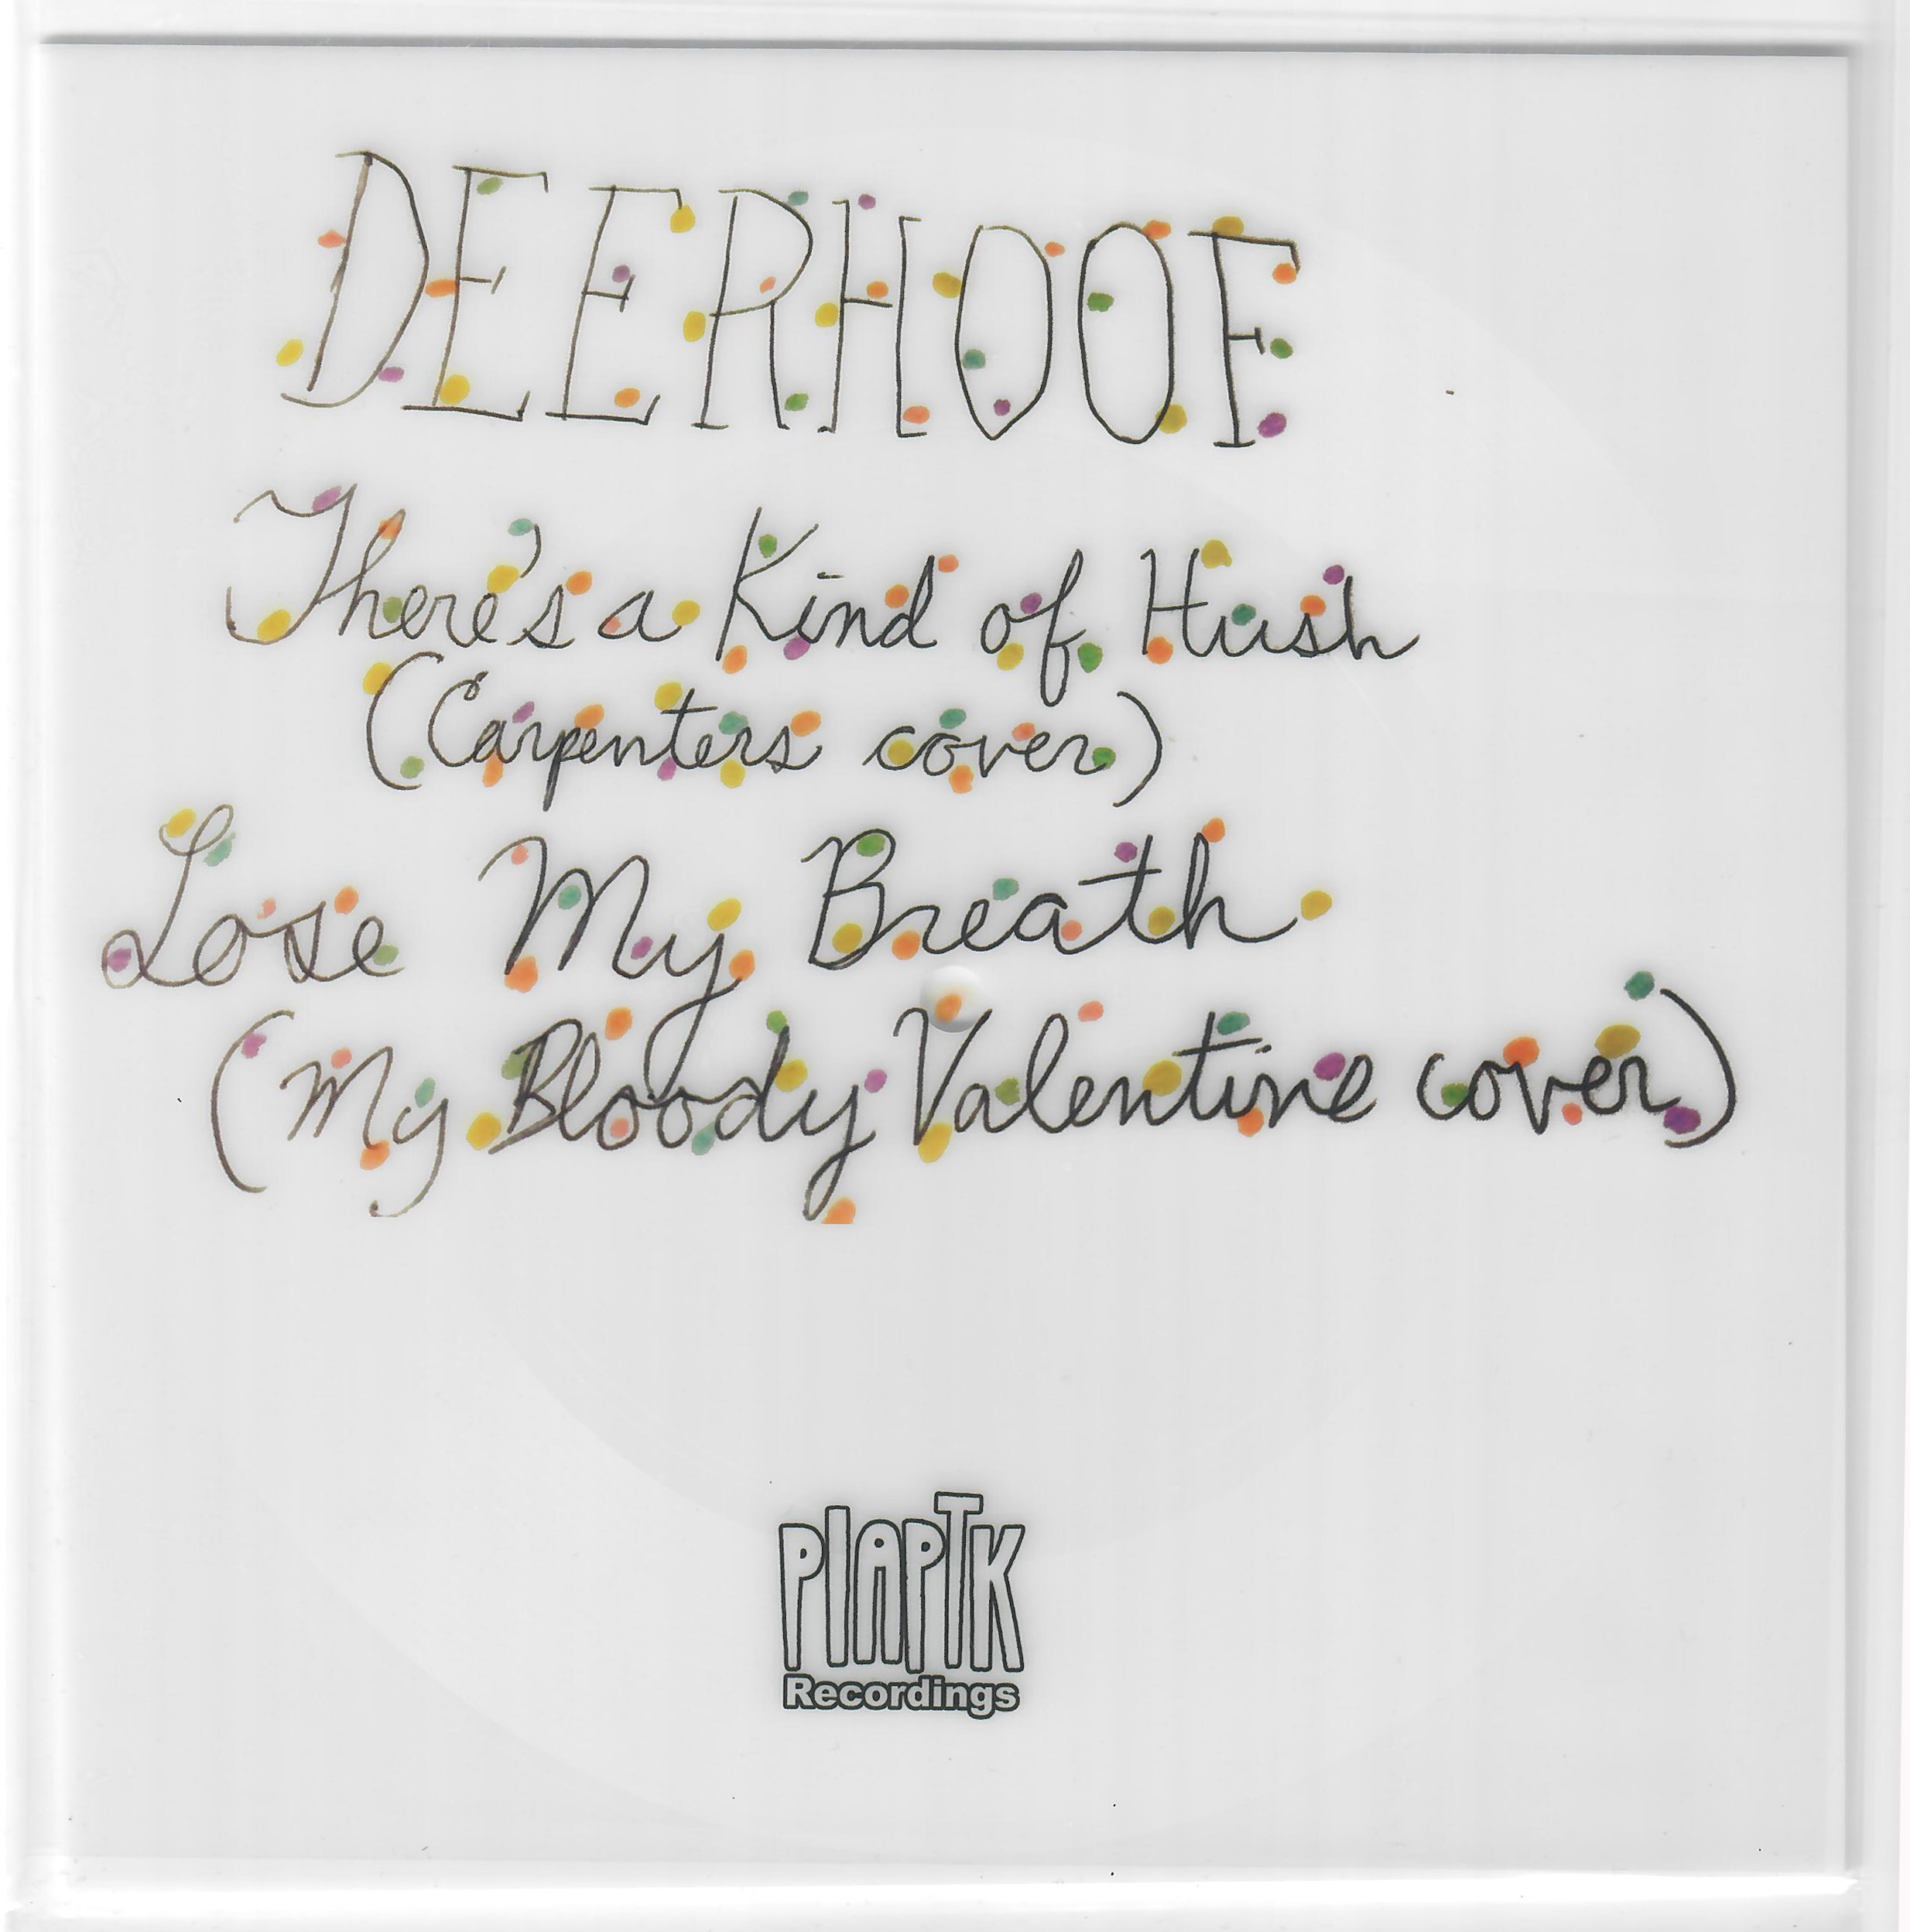 DEERHOOF
There's a Kind of Hush
(Carpenters cover)
Lose My Breath
(My Bloody Valentine cover)
PIAPTK
Recordings